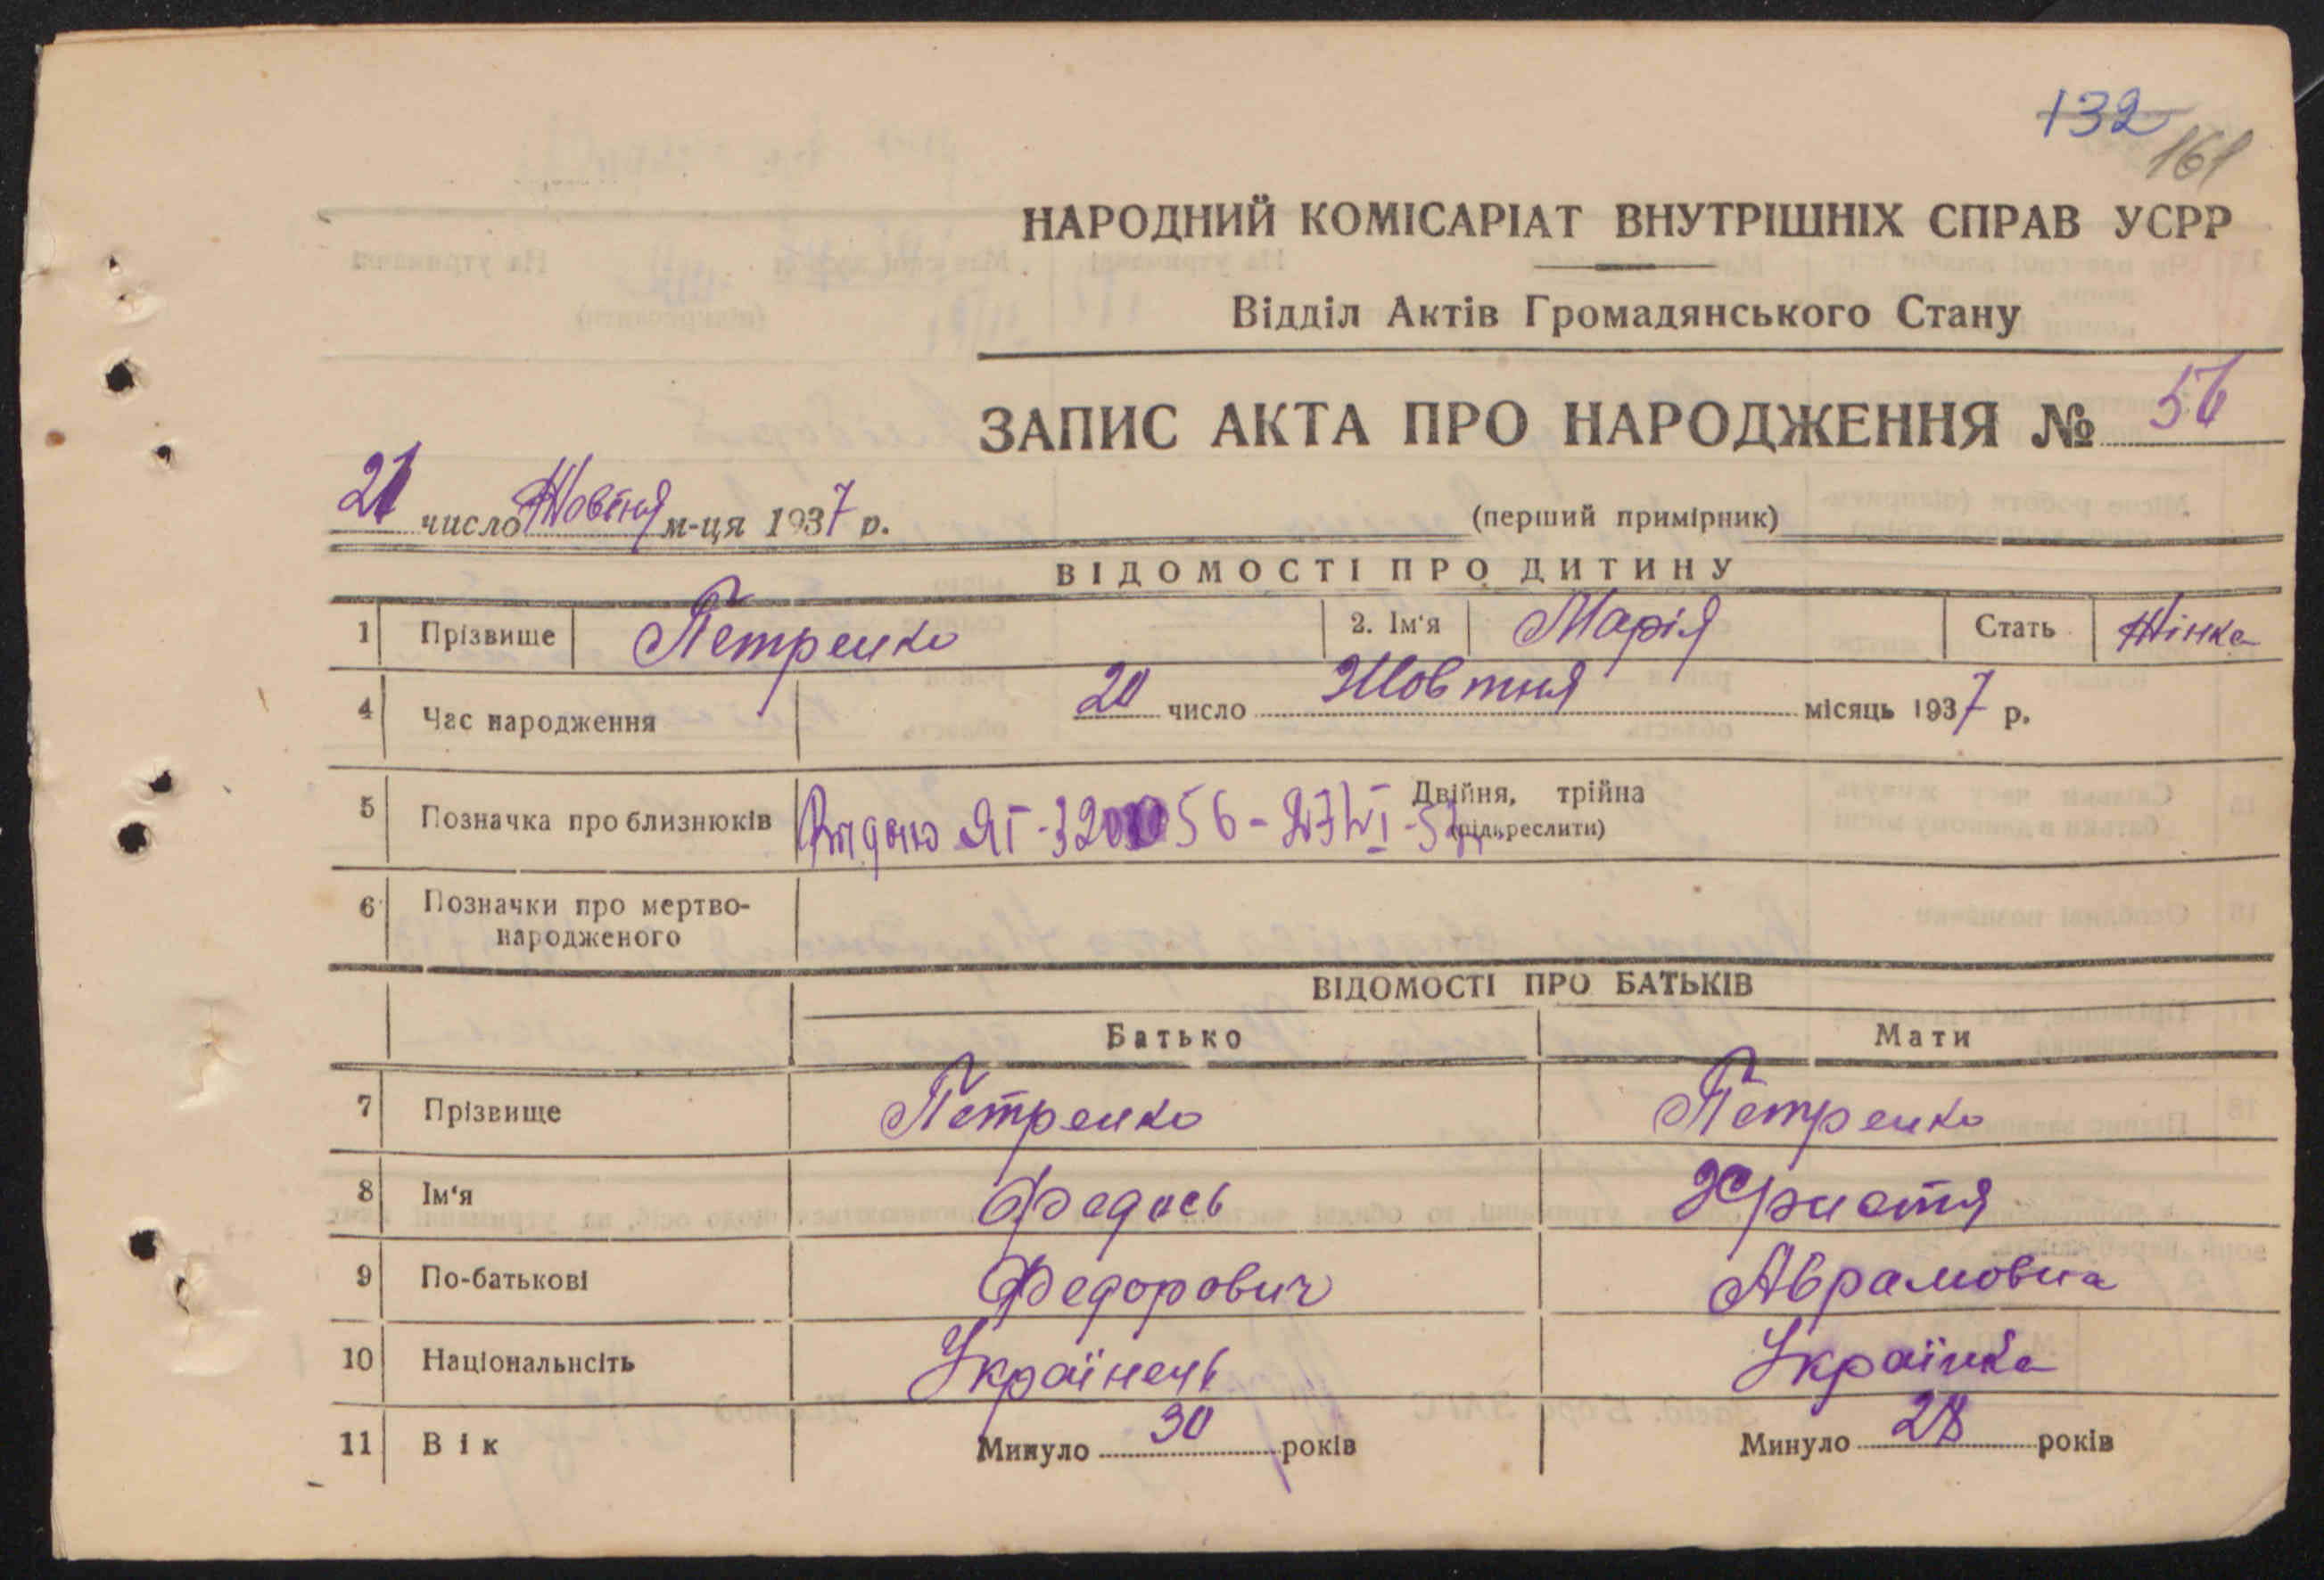 132
161
НАРОДНИЙ КОМІСАРІАТ ВНУТРІШНІХ СПРАВ УСРР
Відділ Актів Громадянського Стану
ЗАПИС АКТА ПРО НАРОДЖЕННЯ № 56
21 число Жовтня м-ця 1937 р.
(перший примірник)
ВІДОМОСТІ ПРО ДИТИНУ
1 Прізвище Петренко 2. Ім'я Марія Стать Жінка
4 Час народження 20 число Жовтня місяць 1937 р.
5 Позначка про близнюків Двійня, трійна
(підкреслити)
6 Позначки про мертво-
народженого
ВІДОМОСТІ ПРО БАТЬКІВ
Батько Мати
7 Прізвище Петренко Петренко
8 Ім'я Федось Христя
9 По-батькові Федорович Аврамовна
10 Національнсіть Українець Українка
11 Вік Минуло 30 років Минуло 28 років